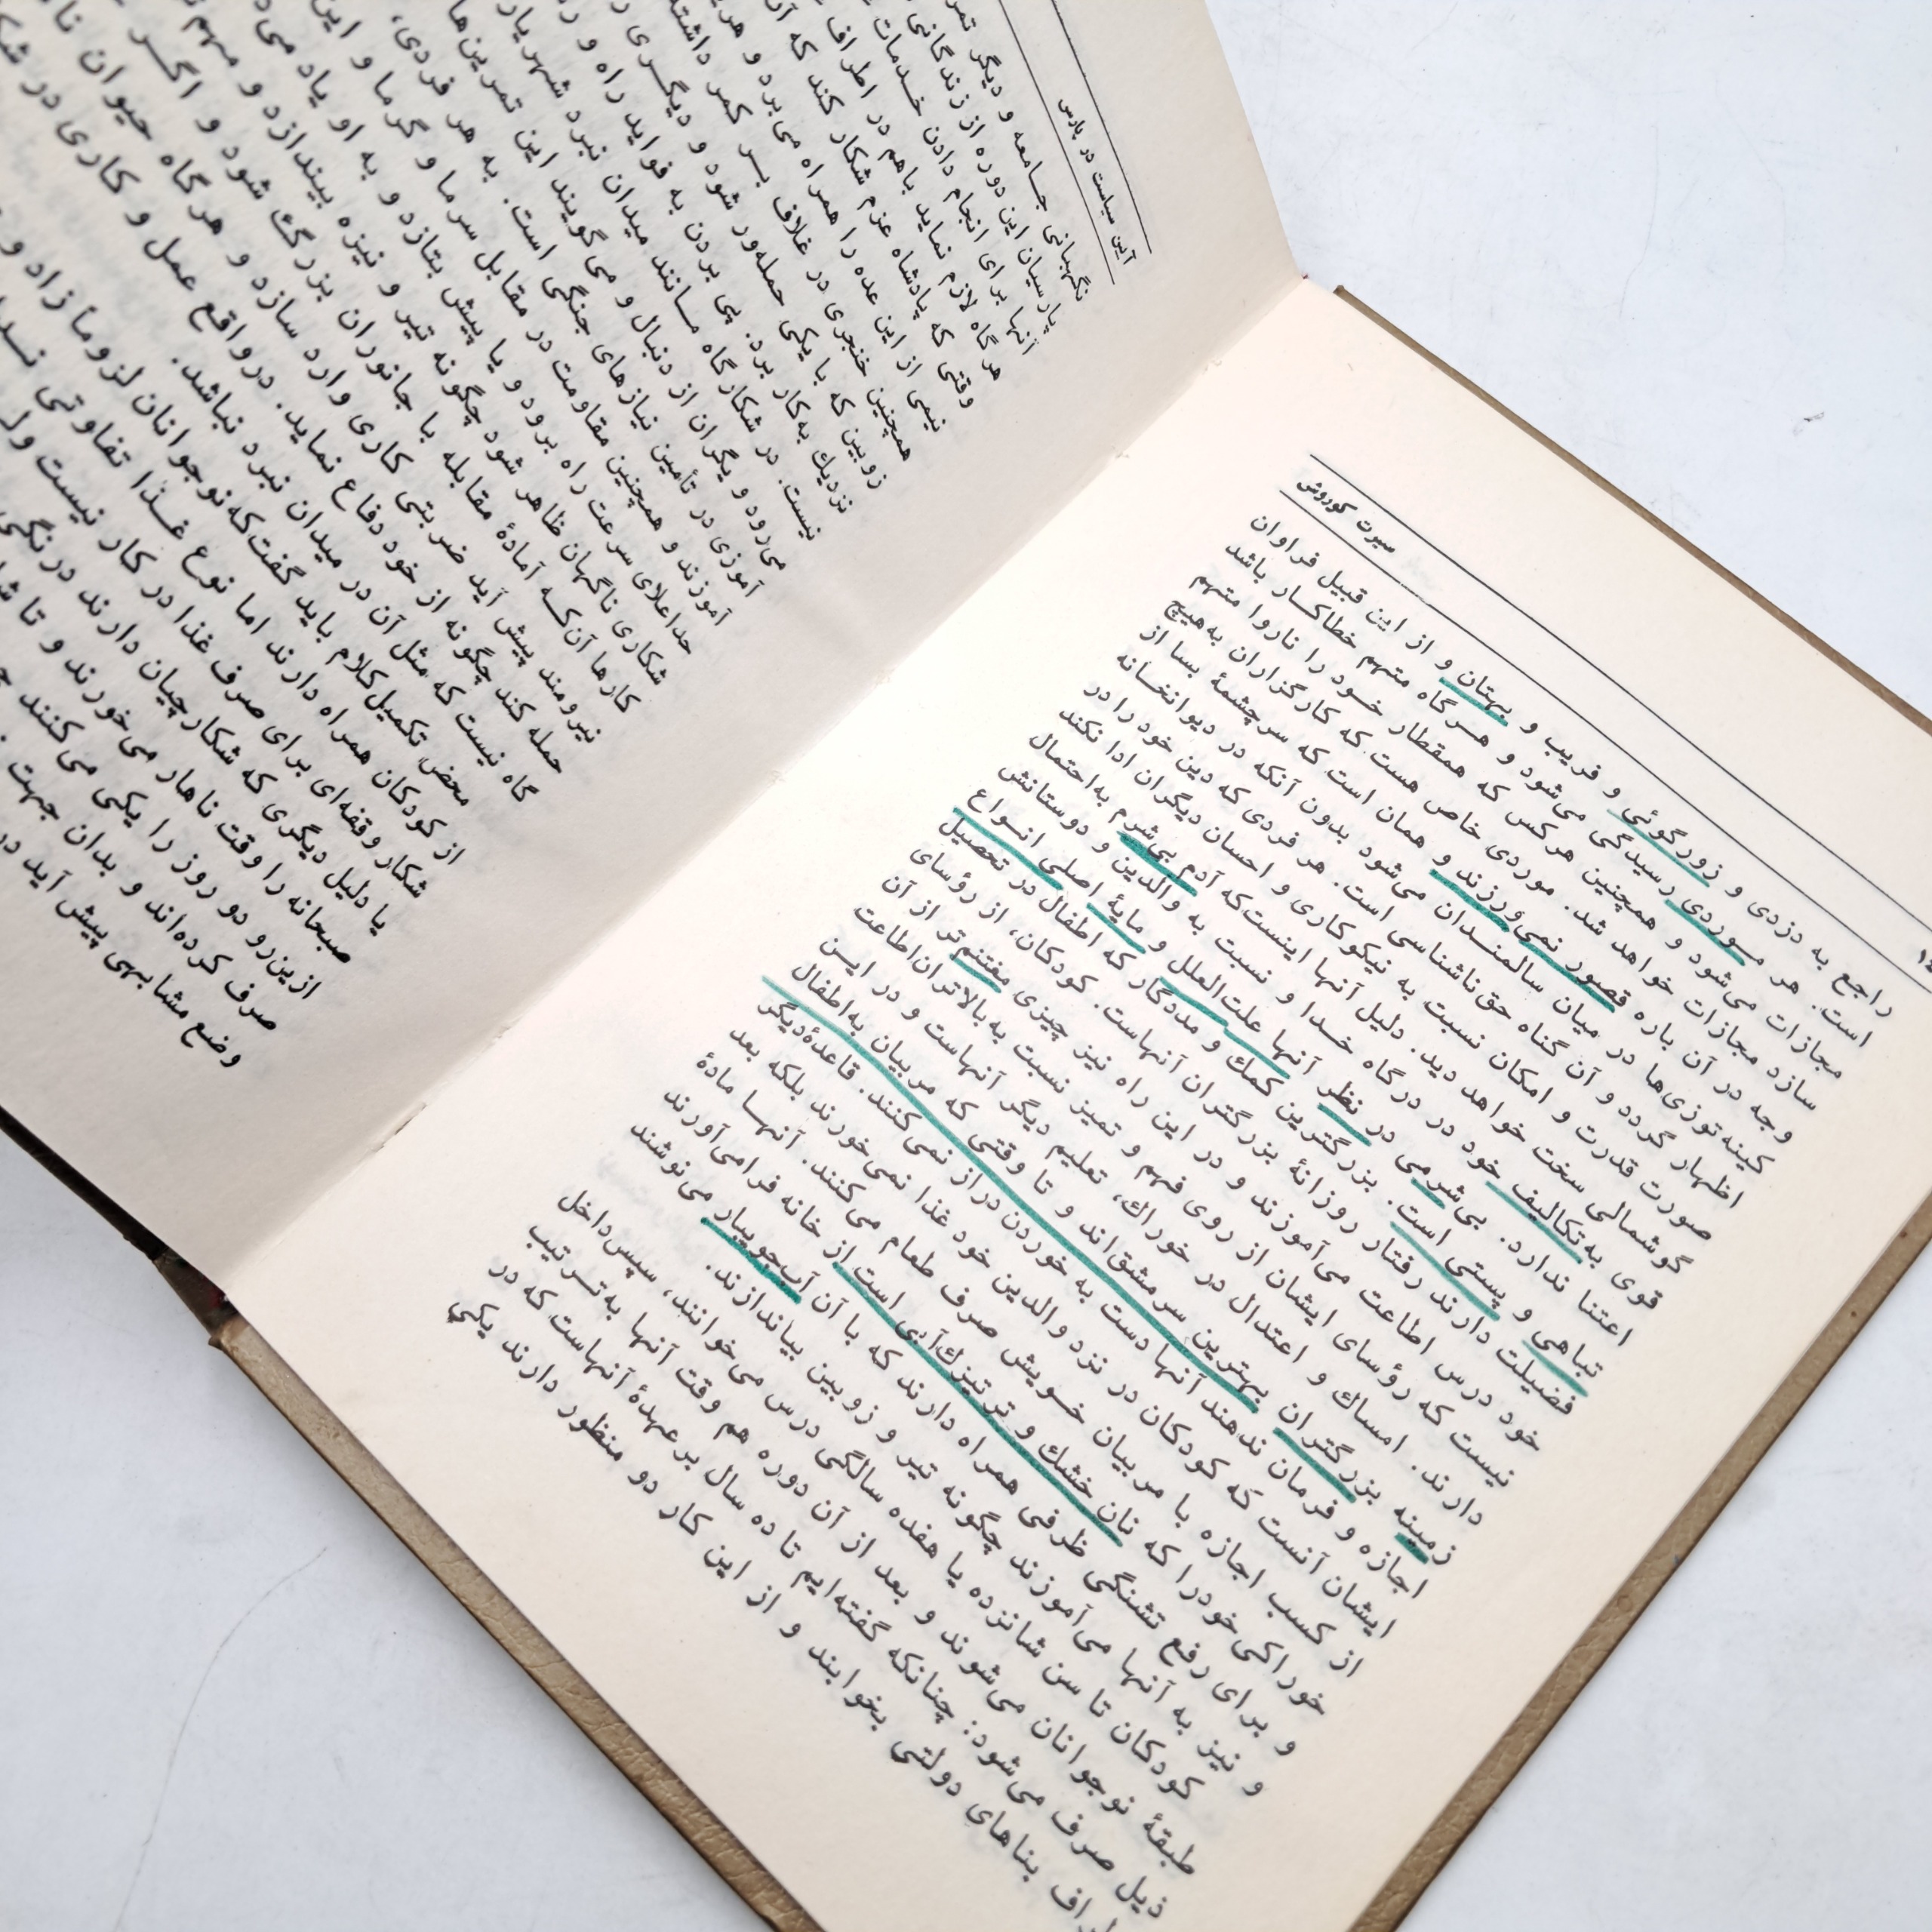 سیرت کوروش
راجع به دزدی و زورگوئی و فریب و بهتان و از این قبیل فراوان
است. هر موردی رسیدگی می‌شود و هرگاه متهم خطاکار باشد
مجازات می‌شود و همچنین هرکس که همقطار خود را ناروا متهم
سازد مجازات خواهد شد. موردی خاص هست که کارگزاران به‌هیچ
وجه در آن باره قصور نمی‌ورزند و همان است که سرچشمهٔ بسا از
کینه‌توزی‌ها در میان سالمندان می‌شود بدون آنکه در دیوانخانه
اظهار گردد و آن گناه حق‌ناشناسی است. هر فردی که دین خود را در
صورت قدرت و امکان نسبت به نیکوکاری و احسان دیگران ادا نکند
گوشمالی سخت خواهد دید. دلیل آنها اینست که آدم بی‌شرم به‌احتمال
قوی به‌تکالیف خود در درگاه خدا و نسبت به والدین و دوستانش
اعتنا ندارد. بی‌شرمی در نظر آنها علت‌العلل و مایهٔ اصلی انواع
تباهی و پستی است. بزرگترین کمك و مددگار که اطفال در تحصیل
فضیلت دارند رفتار روزانهٔ بزرگتران آنهاست. کودکان، از رؤسای
خود درس اطاعت می‌آموزند و در این راه نیز چیزی مغتنم‌تر از آن
نیست که رؤسای ایشان از روی فهم و تمیز نسبت به بالاتران‌اطاعت
دارند. امساك و اعتدال در خوراك، تعلیم دیگر آنهاست و در ایـن
زمینه بزرگتران بهترین سرمشق‌اند و تا وقتی که مربیان به‌اطفال
اجازه و فرمان ندهند آنها دست به خوردن دراز نمی‌کنند. قاعدهٔ‌دیگر
ایشان آنست که کودکان در نزد والدین خود غذا نمی‌خورند بلکه بعد
از کسب اجازه با مربیان خـویش صرف طعام می‌کنند. آنهـا مادهٔ
خوراکی‌خودرا که نان خشك و ترتیزك‌آبی است از خانه فرامی‌آورند
و برای رفع تشنگی ظرفی همراه دارند که با آن آب‌جویبار می‌نوشند
و نیز به آنها می‌آموزند چگونه تیر و زوبین بیاندازند.
کودکان تا سن شانزده یا هفده سالگی درس می‌خوانند، سپس‌داخل
طبقهٔ نوجوانان می‌شوند و بعد از آن دوره هم وقت آنها به‌تـرتیب
ذیل صرف می‌شود: چنانکه گفته‌ایم تا ده سال برعهدهٔ آنهاست که در
بناهای دولتی بخوابند و از این کار دو منظور دارند یکی
آیین سیاست در پارس
نگهبانی جـامعه و دیگر
پارسیان این دوره از زندگانی
آنها برای انجام دادن خـدمات
هرگاه لازم نماید باهم در اطراف
وقتی که پادشاه عزم شکار کند که
نیمی از این عده را همراه می‌برد و
همچنین خنجری در غلاف بـر کمر
زوبین که با یکی حمله‌ور شود و دیگـری
نزدیك به‌کار برد. پی بردن به فواید راه و
نیست. در شکارگاه مـانند میدان نبرد شهریار
می‌رود و یگران از دنبال و می‌گویند این تمرین‌ها
آموزی در تأمین نیازهای جنگی است. به هر فردی،
آموزند و همچنین مقاومت در مقابل سرما و گرما و
حداعلای سرعت راه برود و یا پیش بتازد و به او یاد
شکاری ناگهان ظاهر شود چگونه تیر و نیزه بیندازد و مهم
کارها آن‌کـه آمادهٔ مقابله با جانوران بزرگ شود و اگـر
نیرومند پیش آید ضربتی کاری وارد سازد و هرگاه حیوان
حمله کند چگونه از خود دفاع نماید. درواقع عمل و کاری در
گاه نیست که مثل آن در میدان نبرد نباشد.
محض تکمیل‌کلام باید گفت‌که‌نوجوانان لزوماً زاد و
از کودکان همراه دارند اما نوع غـذا تفاوتی
شکار وقفه‌ای برای صرف غذا در کار نیست
یا دلیل دیگری که شکارچیان دارند درنگی
صبحانه را وقت ناهار می‌خورند و تا
ازین‌رو دو روز را یکی می‌کنند
صرف کرده‌اند و بدان جهت
وضع مشابهی پیش آید